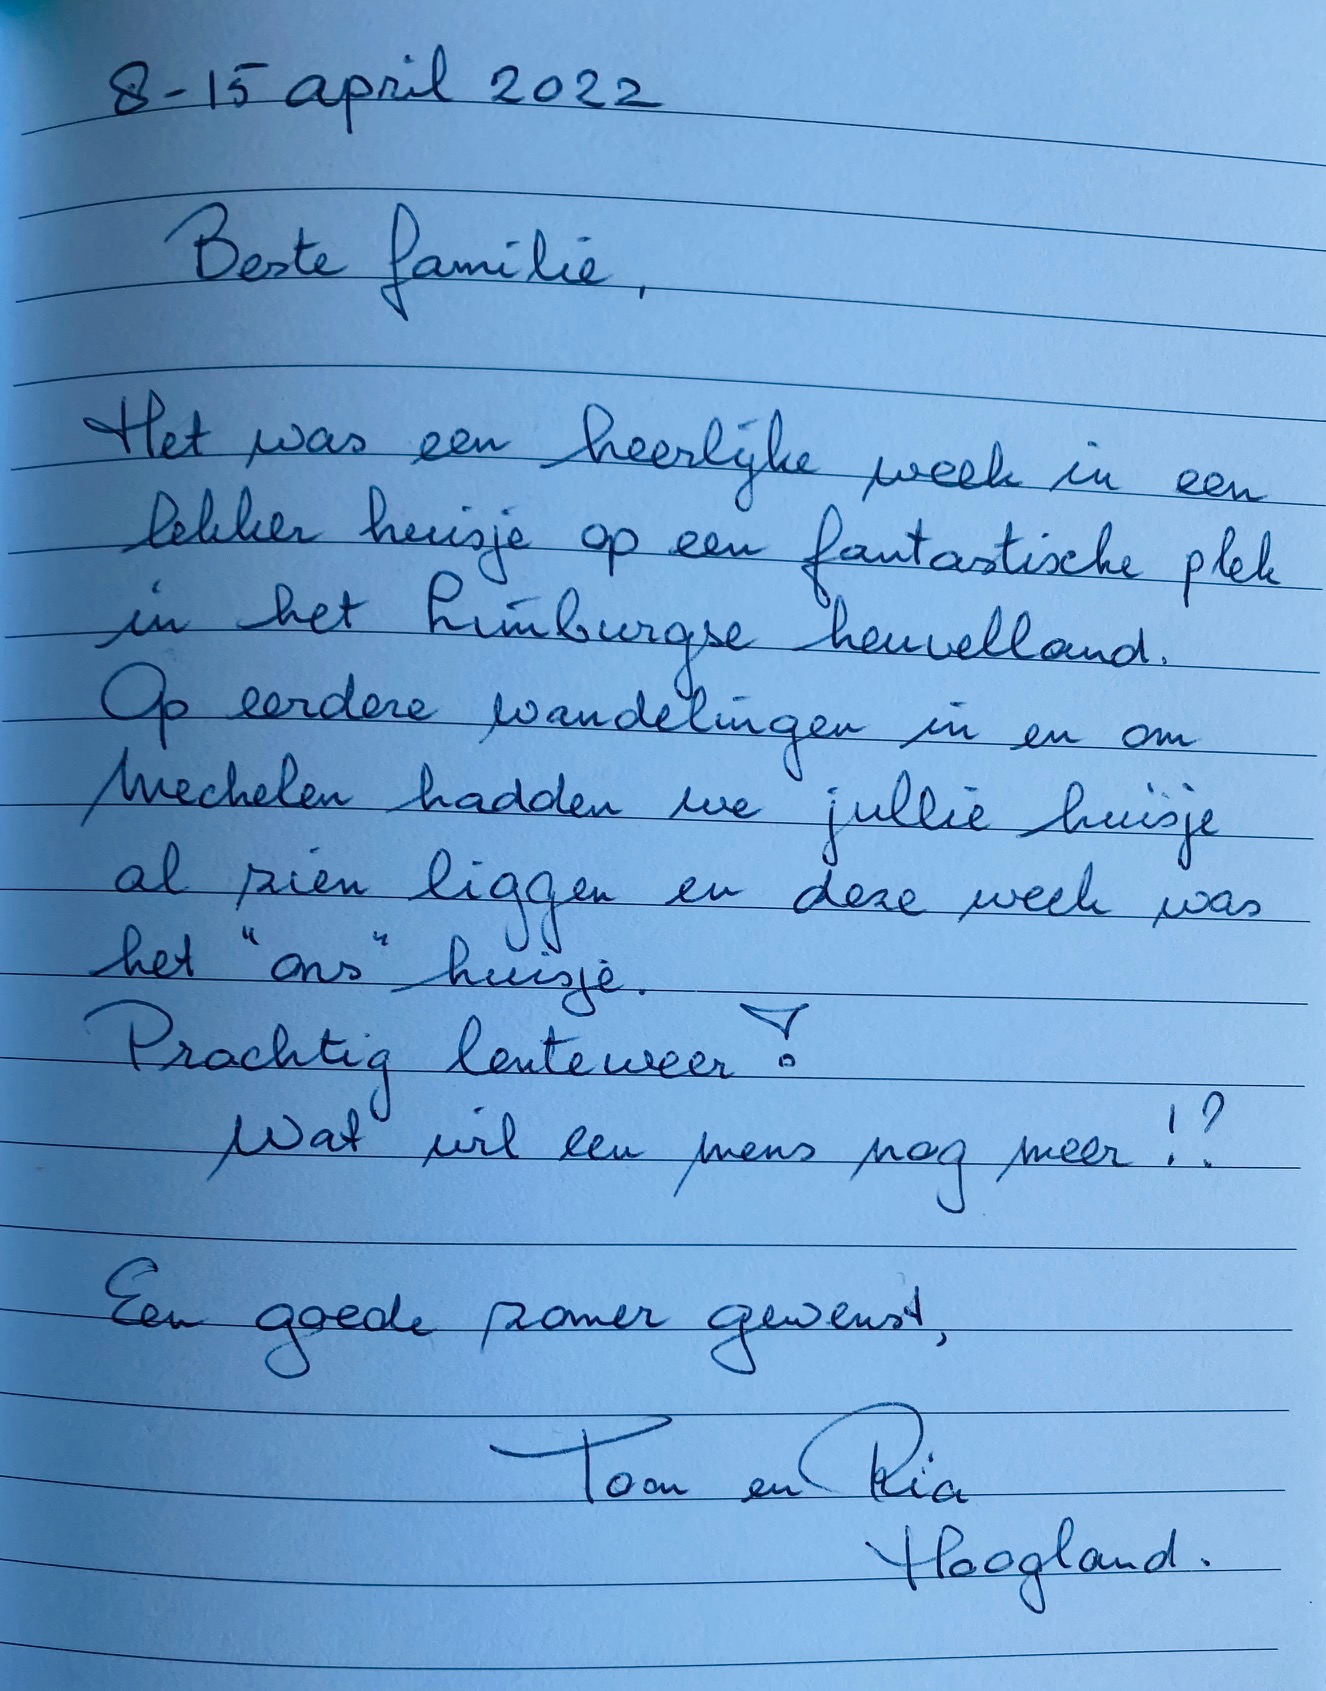 8-15 april 2022
Beste familie,
Het was een heerlijke week in een
lekker huisje op een fantastische plek
in het Limburgse heuvelland.
Op eerdere wandelingen in en om
Mechelen hadden we jullie huisje
al zien liggen en deze week was
het "ons" huisje.
Prachtig lenteweer!
Wat wil een mens nog meer!?
Een goede zomer gewenst,
Toon en Ria
Hoogland.